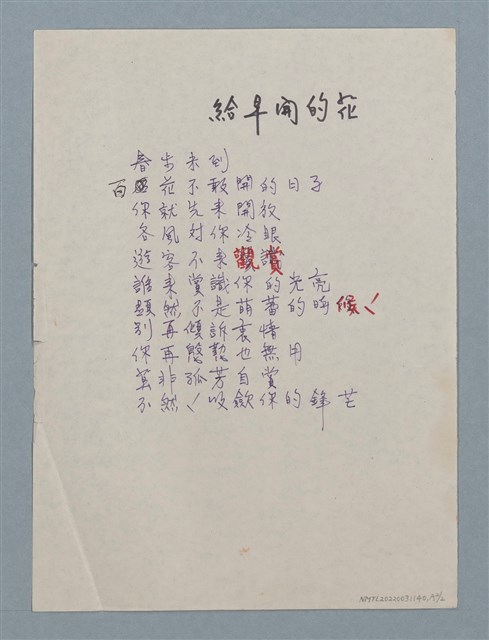 給早開的花
春步未到
百花不敢開的日子
你就先來開放
冬風对你冷眼
遊客不來觀賞
誰來賞識你的光亮
顯然不是萌蕾的時候！
別再傾訴衷情
你再慇懃也無用
莫非孤芳自賞
不然！收斂你的鋒芒
NMTL20220031140